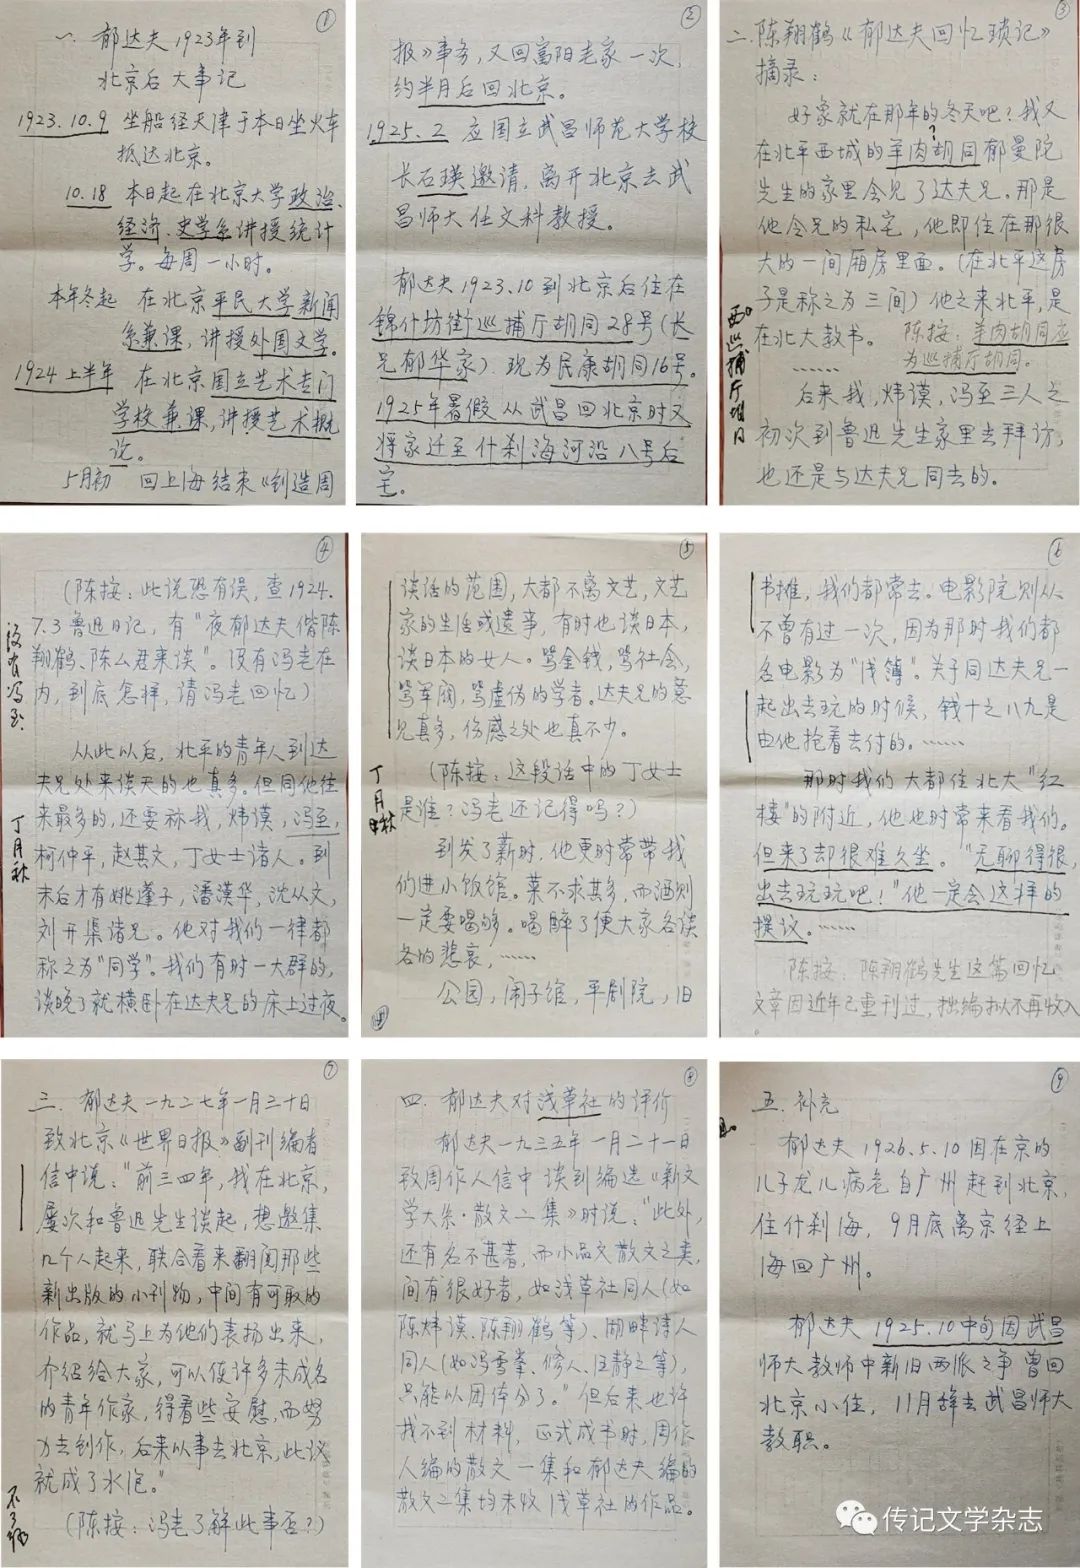 ①
一、郁达夫1923年到
北京后大事记
1923.10.9 坐船经天津于本日坐火车
抵达北京。
10.18 本日起在北京大学政治、
经济、史学系讲授统计
学。每周一小时。
本年冬起 在北京平民大学新闻
系兼课，讲授外国文学。
1924上半年 在北京国立艺术专门
学校兼课，讲授艺术概
论。
5月初 回上海结束《创造周
②
报》事务，又回富阳老家一次，
约半月后回北京。
1925.2 应国立武昌师范大学校
长石瑛邀请，离开北京去武
昌师大任文科教授。
郁达夫1923.10到北京后住在
锦什坊街巡捕厅胡同28号(长
兄郁华家)．现为民康胡同16号。
1925年暑假从武昌回北京时又
将家迁至什刹海河沿八号后
宅。
③
二、陈翔鹤《郁达夫回忆琐记》
摘录：
好象就在那年的冬天吧？我又
在北平西城的羊肉胡同郁曼陀
?
先生的家里会见了达夫兄。那是
他令兄的私宅，他即住在那很
大的一间厢房里面。(在北平这房
子是称之为三间)他之来北平，是
在北大教书。
陈按：羊肉胡同应
为巡捕厅胡同。
西巡捕厅胡同
……
后来我，炜谟，冯至三人之
初次到鲁迅先生家里去拜访，
也还是与达夫兄同去的。
④
(陈按：此说恐有误，查1924.
7.3鲁迅日记，有“夜郁达夫偕陈
翔鹤、陈厶君来谈”。没有冯老在
内，到底怎样，请冯老回忆)
没有冯至
从此以后，北平的青年人到达
夫兄处来谈天的也真多。但同他往
来最多的，还要称我，炜谟，冯至，
柯仲平，赵其文，丁女士诸人。到
丁月秋
末后才有姚蓬子，潘漠华，沈从文，
刘开渠诸兄。他对我们一律都
称之为“同学”。我们有时一大群的，
谈晚了就横卧在达夫兄的床上过夜。
⑤
谈话的范围，大都不离文艺，文艺
家的生活或遗事，有时也谈日本，
谈日本的女人。骂金钱，骂社会，
骂军阀，骂虚伪的学者。达夫兄的意
见真多，伤感之处也真不少。
(陈按：这段话中的丁女士
是谁？冯老还记得吗？)
丁月秋
到发了薪时，他更时常带我
们进小饭馆。菜不求其多，而酒则
一定要喝够。喝醉了便大家各谈
各的悲哀，……
公园，闹子馆，平剧院，旧
⑥
书摊，我们都常去。电影院则从
不曾有过一次，因为那时我们都
名电影为“浅薄”。关于同达夫兄一
起出去玩的时候，钱十之八九是
由他抢着去付的。……
那时我们大都住北大“红
楼”的附近，他也时常来看我们。
但来了却很难久坐。“无聊得很，
出去玩玩吧！”他一定会这样的
提议。……
陈按：陈翔鹤先生这篇回忆
文章因近年已重刊过，拙编拟不再收入
⑦
三．郁达夫一九二七年一月三十日
致北京《世界日报》副刊编者
信中说：“前三四年，我在北京，
屡次和鲁迅先生谈起，想邀集
几个人起来，联合着来翻阅那些
新出版的小刊物，中间有可取的
作品，就马上为他们表扬出来，
介绍给大家，可以使许多未成名
的青年作家，得着些安慰，而努
力去创作，后来以事去北京，此议
就成了水泡。”
(陈按：冯老了解此事否？)
不了解
⑧
四．郁达夫对浅草社的评价
郁达夫一九三五年一月二十一日
致周作人信中谈到编选《新文
学大系·散文二集》时说：“此外，
还有名不甚著，而小品文散文之类，
间有很好者，如浅草社同人(如
陈炜谟、陈翔鹤等)、湖畔诗人
同人(如冯雪峯、修人、汪静之等)，
只能以团体分了。”但后来也许
找不到材料，正式成书时，周作
人编的散文一集和郁达夫编的
散文二集均未收浅草社的作品。
⑨
五．补充
郁达夫1926.5.10因在京的
儿子龙儿病危自广州赶到北京，
住什刹海，9月底离京经上
海回广州。
郁达夫1925.10中旬因武昌
师大教师中新旧两派之争曾回
北京小住，11月辞去武昌师大
教职。
传记文学杂志